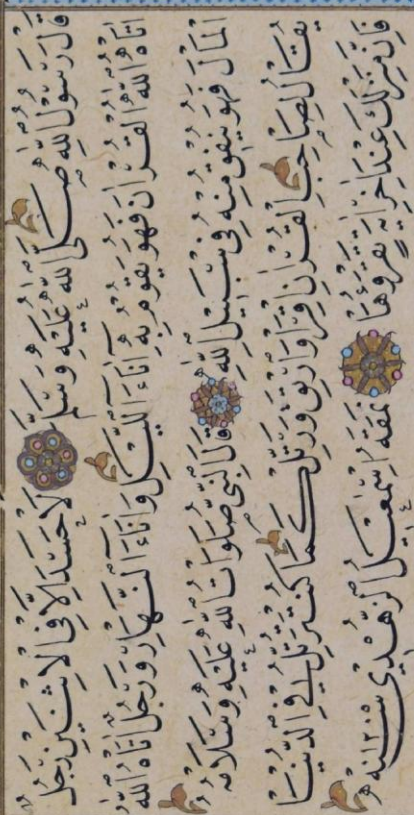 قَالَ رَسُولُ اللهِ صَلَّى اللهُ عَلَيْهِ وَسَلَّمَ لَا حَسَدَ اِلَّا فِي الْاِثْنَيْنِ رَجُلٌ
اٰتَاهُ اللهُ الْقُرْاٰنَ فَهُوَ يَقُومُ بِهِ اٰنَاءَ اللَّيْلِ وَاٰنَاءَ النَّهَارِ وَرَجُلٌ اٰتَاهُ اللهُ
الْمَالَ فَهُوَ يُنْفِقُ مِنْهُ فِي سَبِيلِ اللهِ قَالَ النَّبِيُّ صَلَوَاتُ اللهِ عَلَيْهِ وَسَلَامُهُ
يُقَالُ لِصَاحِبِ الْقُرْاٰنِ اِقْرَأْ وَارْتَقِ وَرَتِّلْ كَمَا كُنْتَ تُرَتِّلُ فِي الدُّنْيَا
فَاِنَّ مَنْزِلَكَ عِنْدَ اٰخِرِ اٰيَةٍ تَقْرَؤُهَا نَمَقَهُ اِسْمٰعِيلُ الزُّهْدِي سنه ١٢٠٥